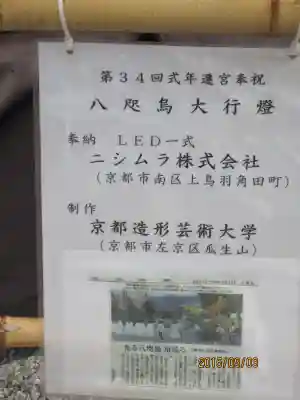 第34回式年遷宮奉祝
八咫烏大行燈
奉納 LED一式
ニシムラ株式会社
(京都市南区上鳥羽角田町)
制作
京都造形芸術大学
(京都市左京区瓜生山)
2015/09/09